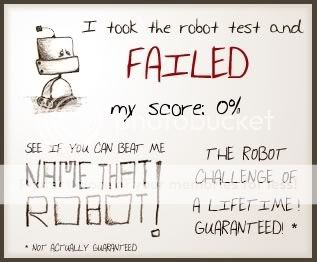 I took the robot test and
FAILED
my score: 0%
SEE IF YOU CAN BEAT ME
NAME THAT
ROBOT!
THE ROBOT
CHALLENGE OF
A LIFETIME!
GUARANTEED! *
* NOT ACTUALLY GUARANTEED